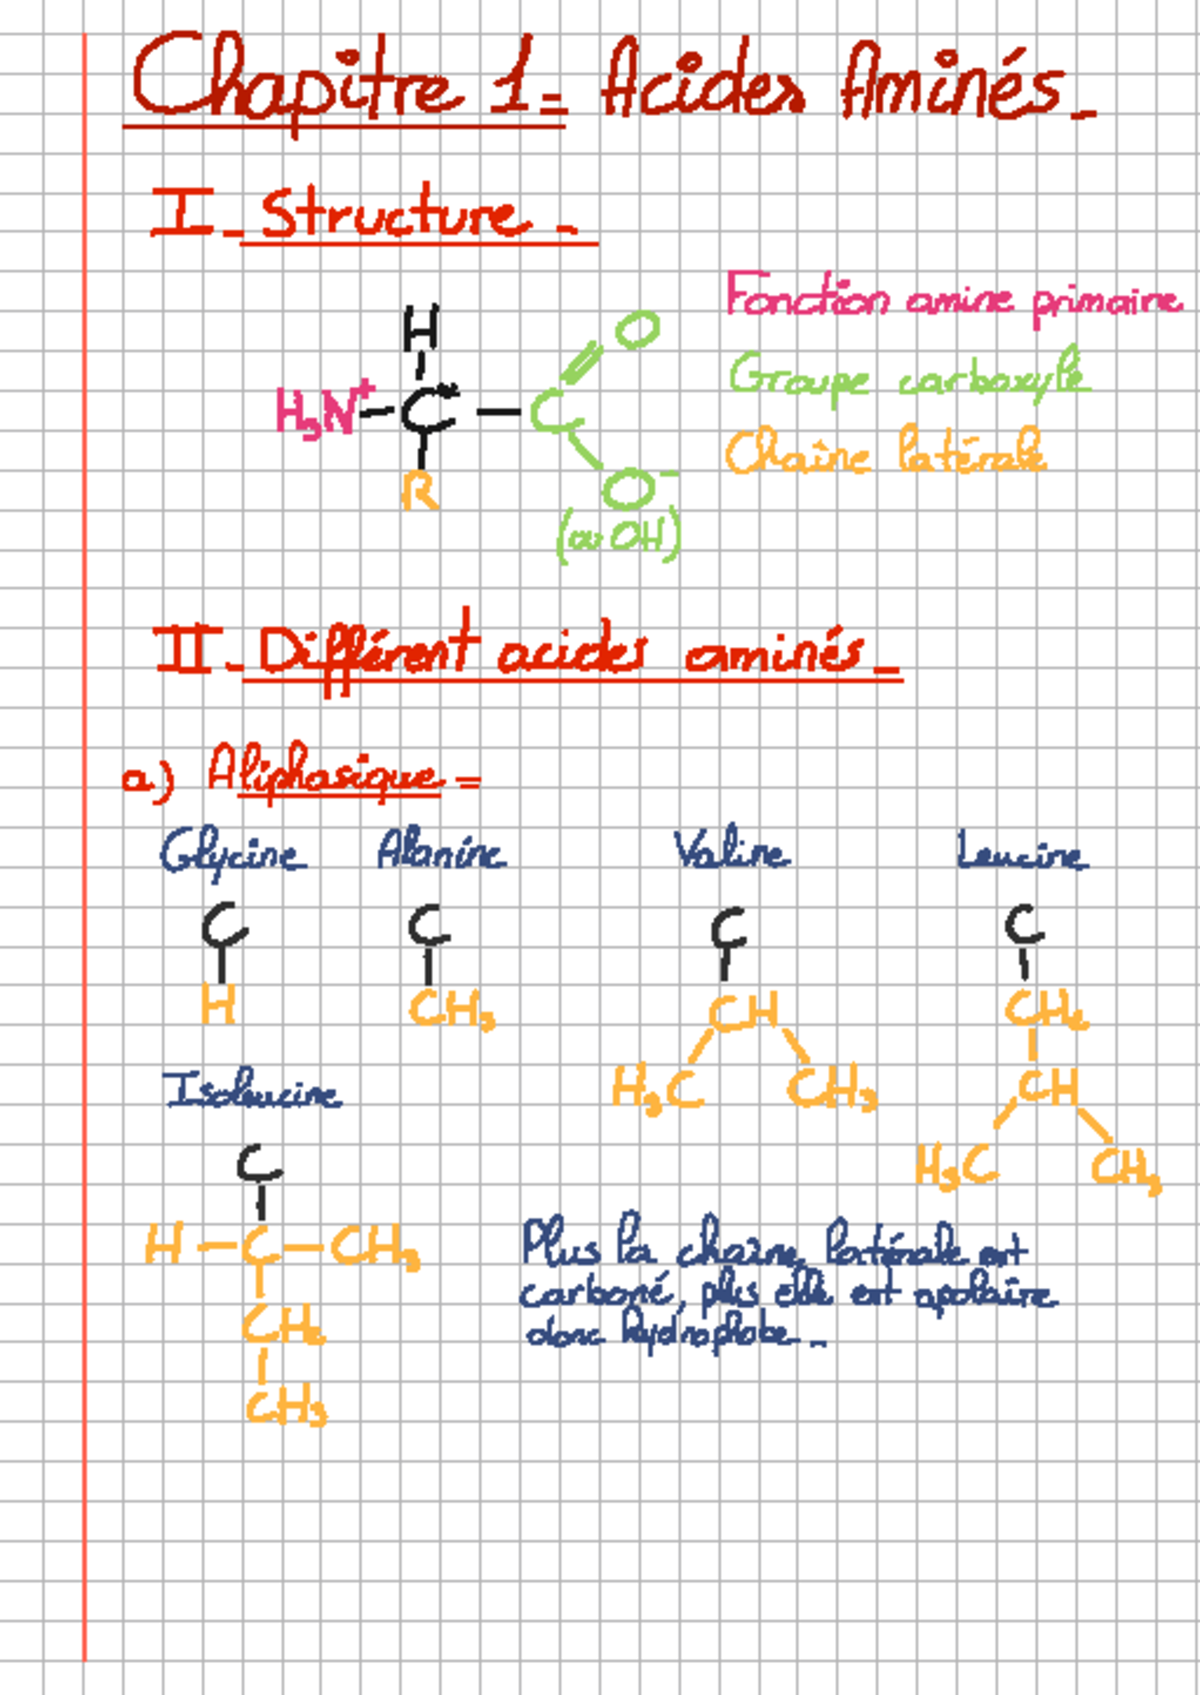 Chapitre 1 = Acides Aminés.
I. Structure.
Fonction amine primaire
Groupe carboxyle
Chaîne latérale
H
H₃N⁺ - C* - C
O
O⁻
(ou OH)
R
II. Différent acides aminés.
a) Aliphasique =
Glycine Alanine Valine Leucine
C C C C
H CH₃ CH CH₂
H₃C CH₃ CH
H₃C CH₃
Isoleucine
C
H - C - CH₃
CH₂
CH₃
Plus la chaîne latérale est
carboné, plus elle est apolaire
donc hydrophobe.